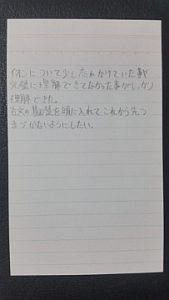 について少し忘れかけていた事や
完璧に理解できてなかった事がしっかり
理解できた。
古文の基礎を頭に入れてこれから先つ
まづかないようにしたい。